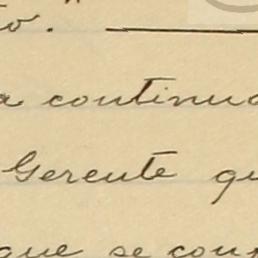 to.
a continua
Gerente qu
que se con